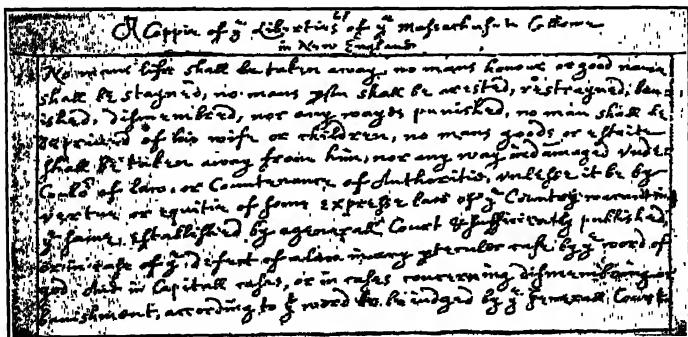 A Coppie of yᵉ Liberties of yᵉ Massachusets Collonie
in New England.
No mans life shall be taken away, no mans honour or good name
shall be stayned, no mans pson shall be arested, restrayned, ban-
ished, dismembred, nor any wayes punished, no man shall be
deprived of his wife or children, no mans goods or estaite
shall be taken away from him, nor any way indamaged Vnder
Coulor of law, or Countenance of Authoritie, unlesse it be by
vertue or equitie of some expresse law of yᵉ Country warranting
yᵉ same, established by a generall Court & sufficiently published,
or in case of yᵉ defect of a law in any pteculer case by yᵉ word of
god. And in Capitall cases, or in cases concerning dismembring or
banishment, according to yᵗ word to be iudged by yᵉ Generall Court.